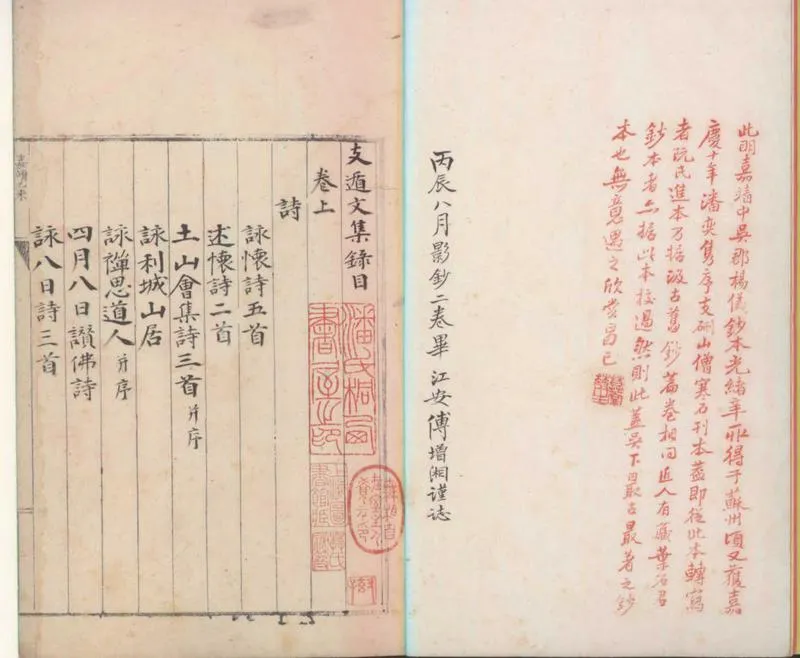 此明嘉靖中吳郡楊儀鈔本光緒辛夘得于蘇州頃又蒦嘉
慶十年潘奕雋序支硎山僧寒石刊本葢即從此本轉寫
者阮氏進本乃據汲古舊鈔篇卷相同近人有藏葉石君
鈔本者亦據此本校過然則此蓋吳下最古最著之鈔
本也無意遇之欣賞曷已
丙辰八月影鈔二卷畢 江安傅增湘謹誌
支遁文集錄目
卷上
詩
詠懷詩五首
述懷詩二首
土山會集詩三首 并序
詠利城山居
詠禪思道人 并序
四月八日讚佛詩
詠八日詩三首